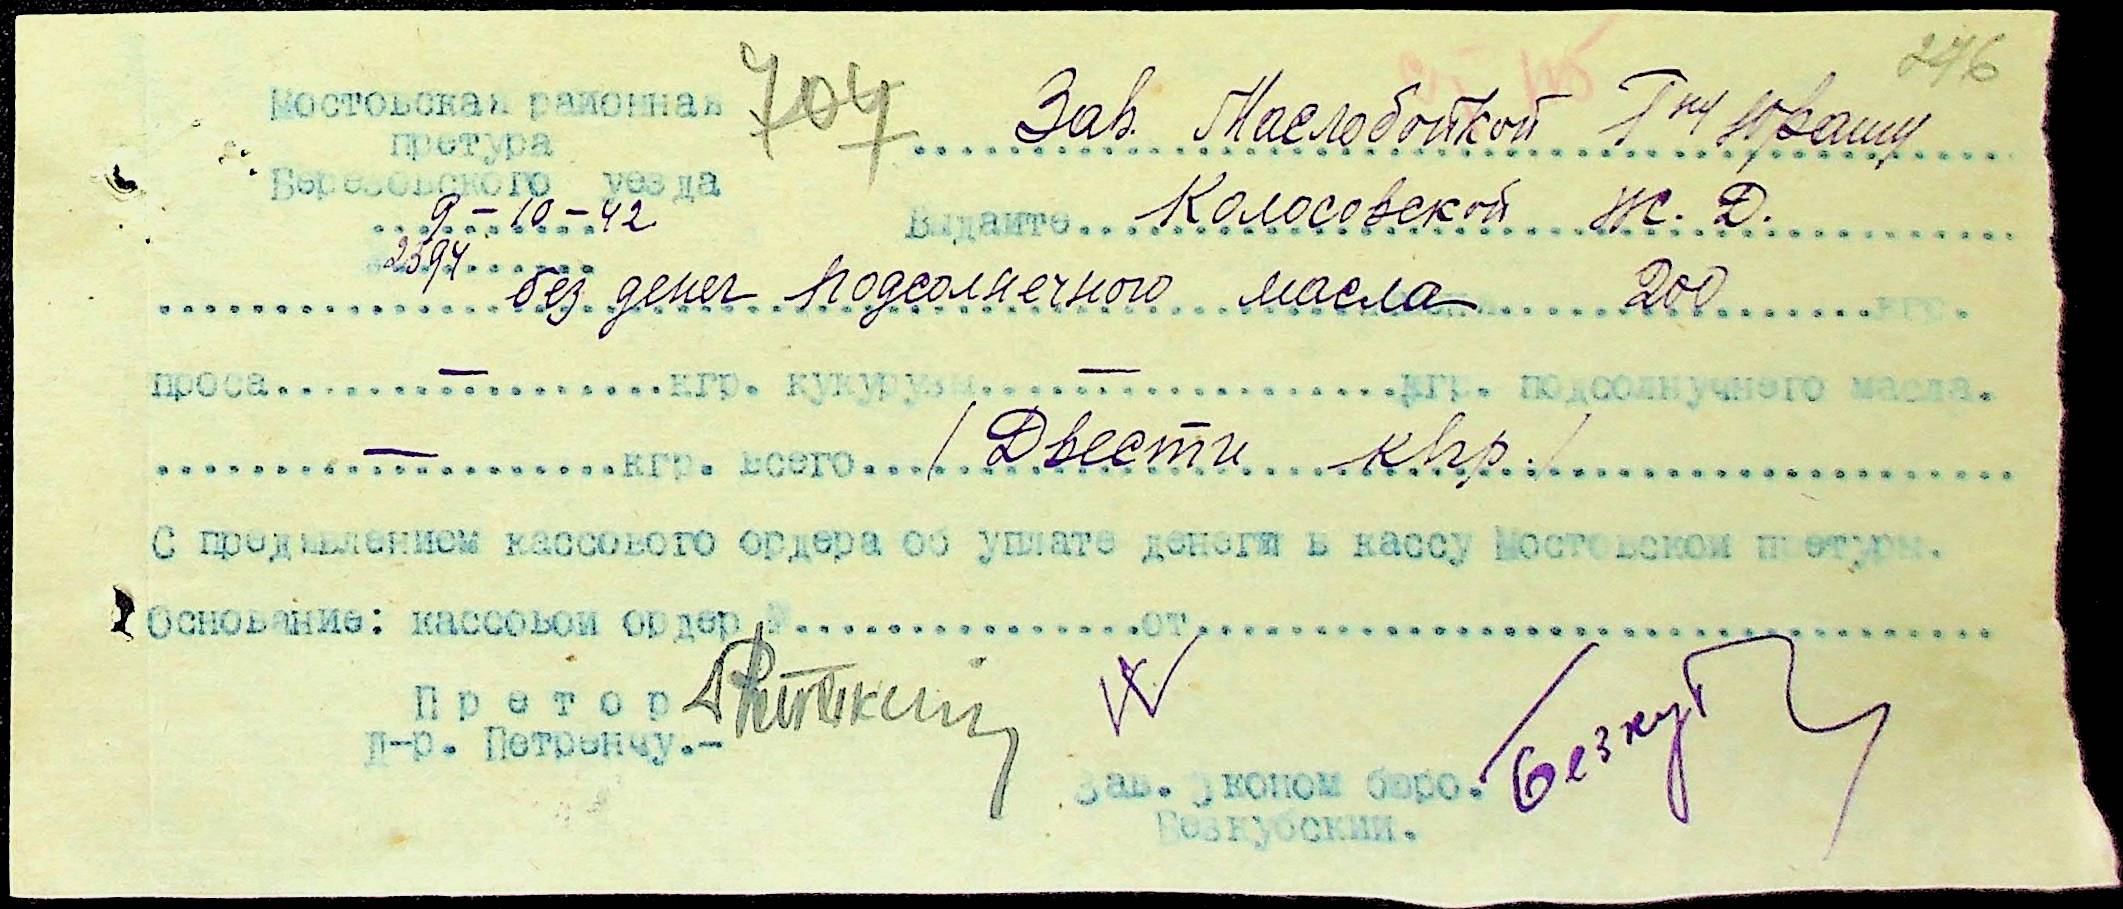 276
Мостовская районная
претура
Березовского уезда
704
Зав. Маслобойкой Г-ну Юрашу
9-10-42
2394
Выдайте Колосовской Ж. Д.
без денег подсолнечного масла 200 кгр.
проса — кгр. кукурузы — кгр. подсолнучнего масла.
— кгр. всего / Двести кгр. /
С предявлением кассового ордера об уплате денегй в кассу Мостовской претуры.
Основание: кассовой ордер № от
Претор
Д-р. Петренчу.-
Зав. Эконом бюро.
Безкубский.